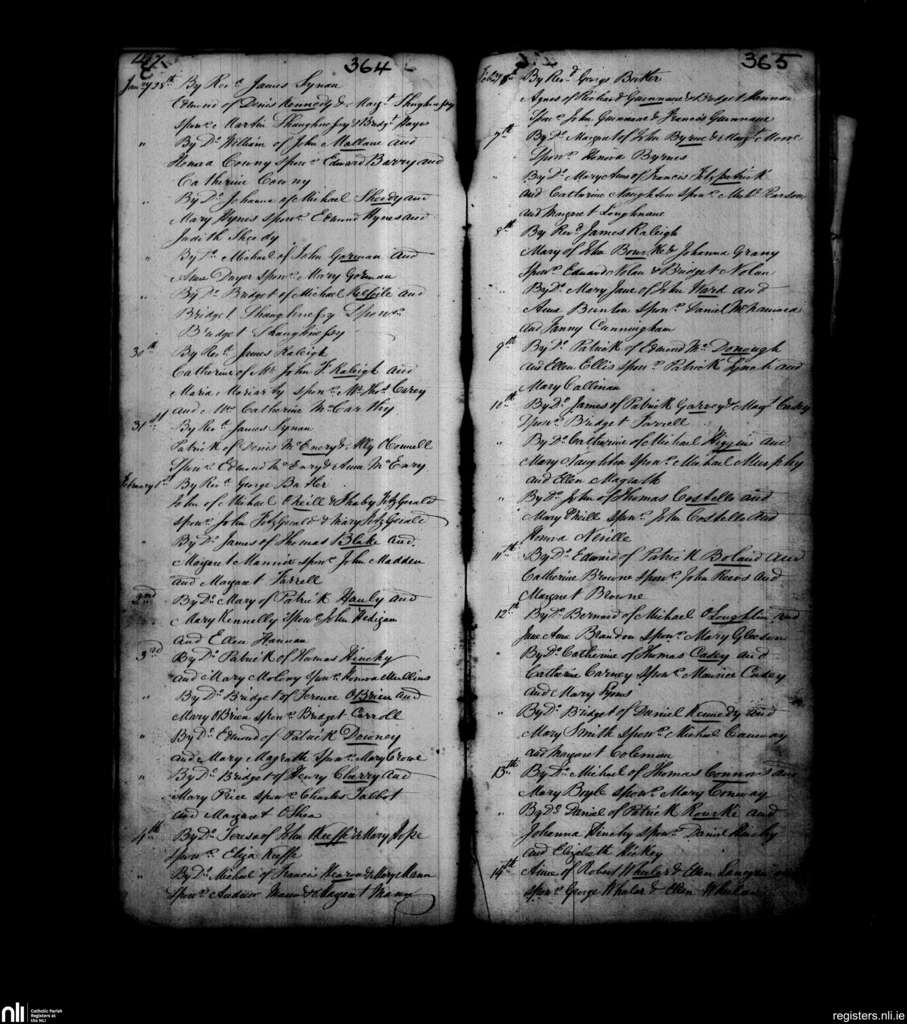 364
Jany 28th By Revd. James Synan
Edmund of Denis Kennedy & Margt Shaughnessy
Sponrs Martin Shaughnessy & Bridgt Hayes
" By Do. William of John Mallane and
Honora Cowny Sponrs Edward Barry and
Catherine Cowny
" By Do. Johanna of Michael Sheedy and
Mary Hynes sponrs Edmund Hynes and
Judith Sheedy
" By Do. Michael of John Gorman and
Anne Dwyer sponr. Mary Gorman
" By Do. Bridget of Michael and
Bridget Shaughnessy Sponr.
Bridget Shaughnessy
30th By Revd. James Raleigh
Catherine of Mr John F. Raleigh and
Maria Moriarty sponrs Mr Thos. Carey
and Mrs Catherine McCarthy
31st By Revd. James Synan
Patrick of Denis McEnery & Ally OConnell
Sponrs Edmund McEnry & Anne McEnry
February 1st By Revd. George Butler
John of Michael Neill & Phoeby FitzGerald
sponrs John FitzGerald & Mary FitzGerald
" By Do. James of Thomas Blake and
Margaret Mannix sponrs John Madden
and Margaret Farrell
2nd By Do. Mary of Patrick Hanly and
Mary Kennelly Sponrs John Hedigan
and Ellen Hannan
3rd By Do. Patrick of Thomas Hinchy
and Mary Molony Sponr. Honora Mullins
" By Do. Bridget of Terence OBrien and
Mary OBrien sponr. Bridget Carroll
" By Do. Edmund of Patrick Downey
and Mary Magrath Sponr. Mary Crowe
" By Do. Bridget of Henry Cherry and
Mary Rice sponrs Charles Talbot
and Margaret OShea
4th By Do. Teresa of John Keeffe & Mary Hope
sponr. Eliza Keeffe
" By Do. Michael of Francis Hearn & Mary Mann
Sponrs Andrew Mann & Margaret Mann
365
Feby By Revd George Butler
Agnes of Richard Guinnane & Bridget Hannan
Sponrs John Guinnane & Francis Guinnane
7th By Do. Margaret of John Byrne & Margt. Moore
Sponr. Honora Byrnes
" By Do. Mary Anne of Francis Fitzpatrick
and Catherine Naughton sponrs Michl.
and Margaret Loughnane
8th By Revd. James Raleigh
Mary of John Bourke & Johanna Grany
Sponrs Edward Nolan & Bridget Nolan
" By Do. Mary Jane of John Ward and
Anne Bunton Sponrs Daniel McNamara
and Fanny Cunningham
9th By Do. Patrick of Edmund McDonough
and Ellen Ellis sponrs Patrick Lynch and
Mary Callinan
10th By Do. James of Patrick Garvey & Margt
Sponr. Bridget Farrell
" By Do. Catherine of Michael Higgins and
Mary Naughton Sponrs Michael Murphy
and Ellen Magrath
" By Do. John of Thomas Costello and
Mary ONeill sponrs John Costello and
Honora Neville
11th By Do. Edward of Patrick Boland and
Catherine Browne sponrs John Reeves and
Margaret Browne
12th By Do. Bernard of Michael OLoughlin and
Jane Anne Brandon sponr. Mary Gleeson
" By Do. Catherine of Thomas Casey and
Catherine Carney sponrs Maurice Casey
and Mary
" By Do. Bridget of Daniel Kennedy and
Mary Smith sponrs Michael
and Margaret Coleman
13th By Do. Michael of Thomas Connors and
Mary Boyle sponr. Mary Conway
" By Do. Daniel of Patrick Rourke and
Johanna Hinchy sponrs Daniel
and Elizabeth Hickey
14th Anne of Robert Wheeler & Ellen
sponrs George Wheeler & Ellen
nli
Catholic Parish
Registers at
the NLI
registers.nli.ie